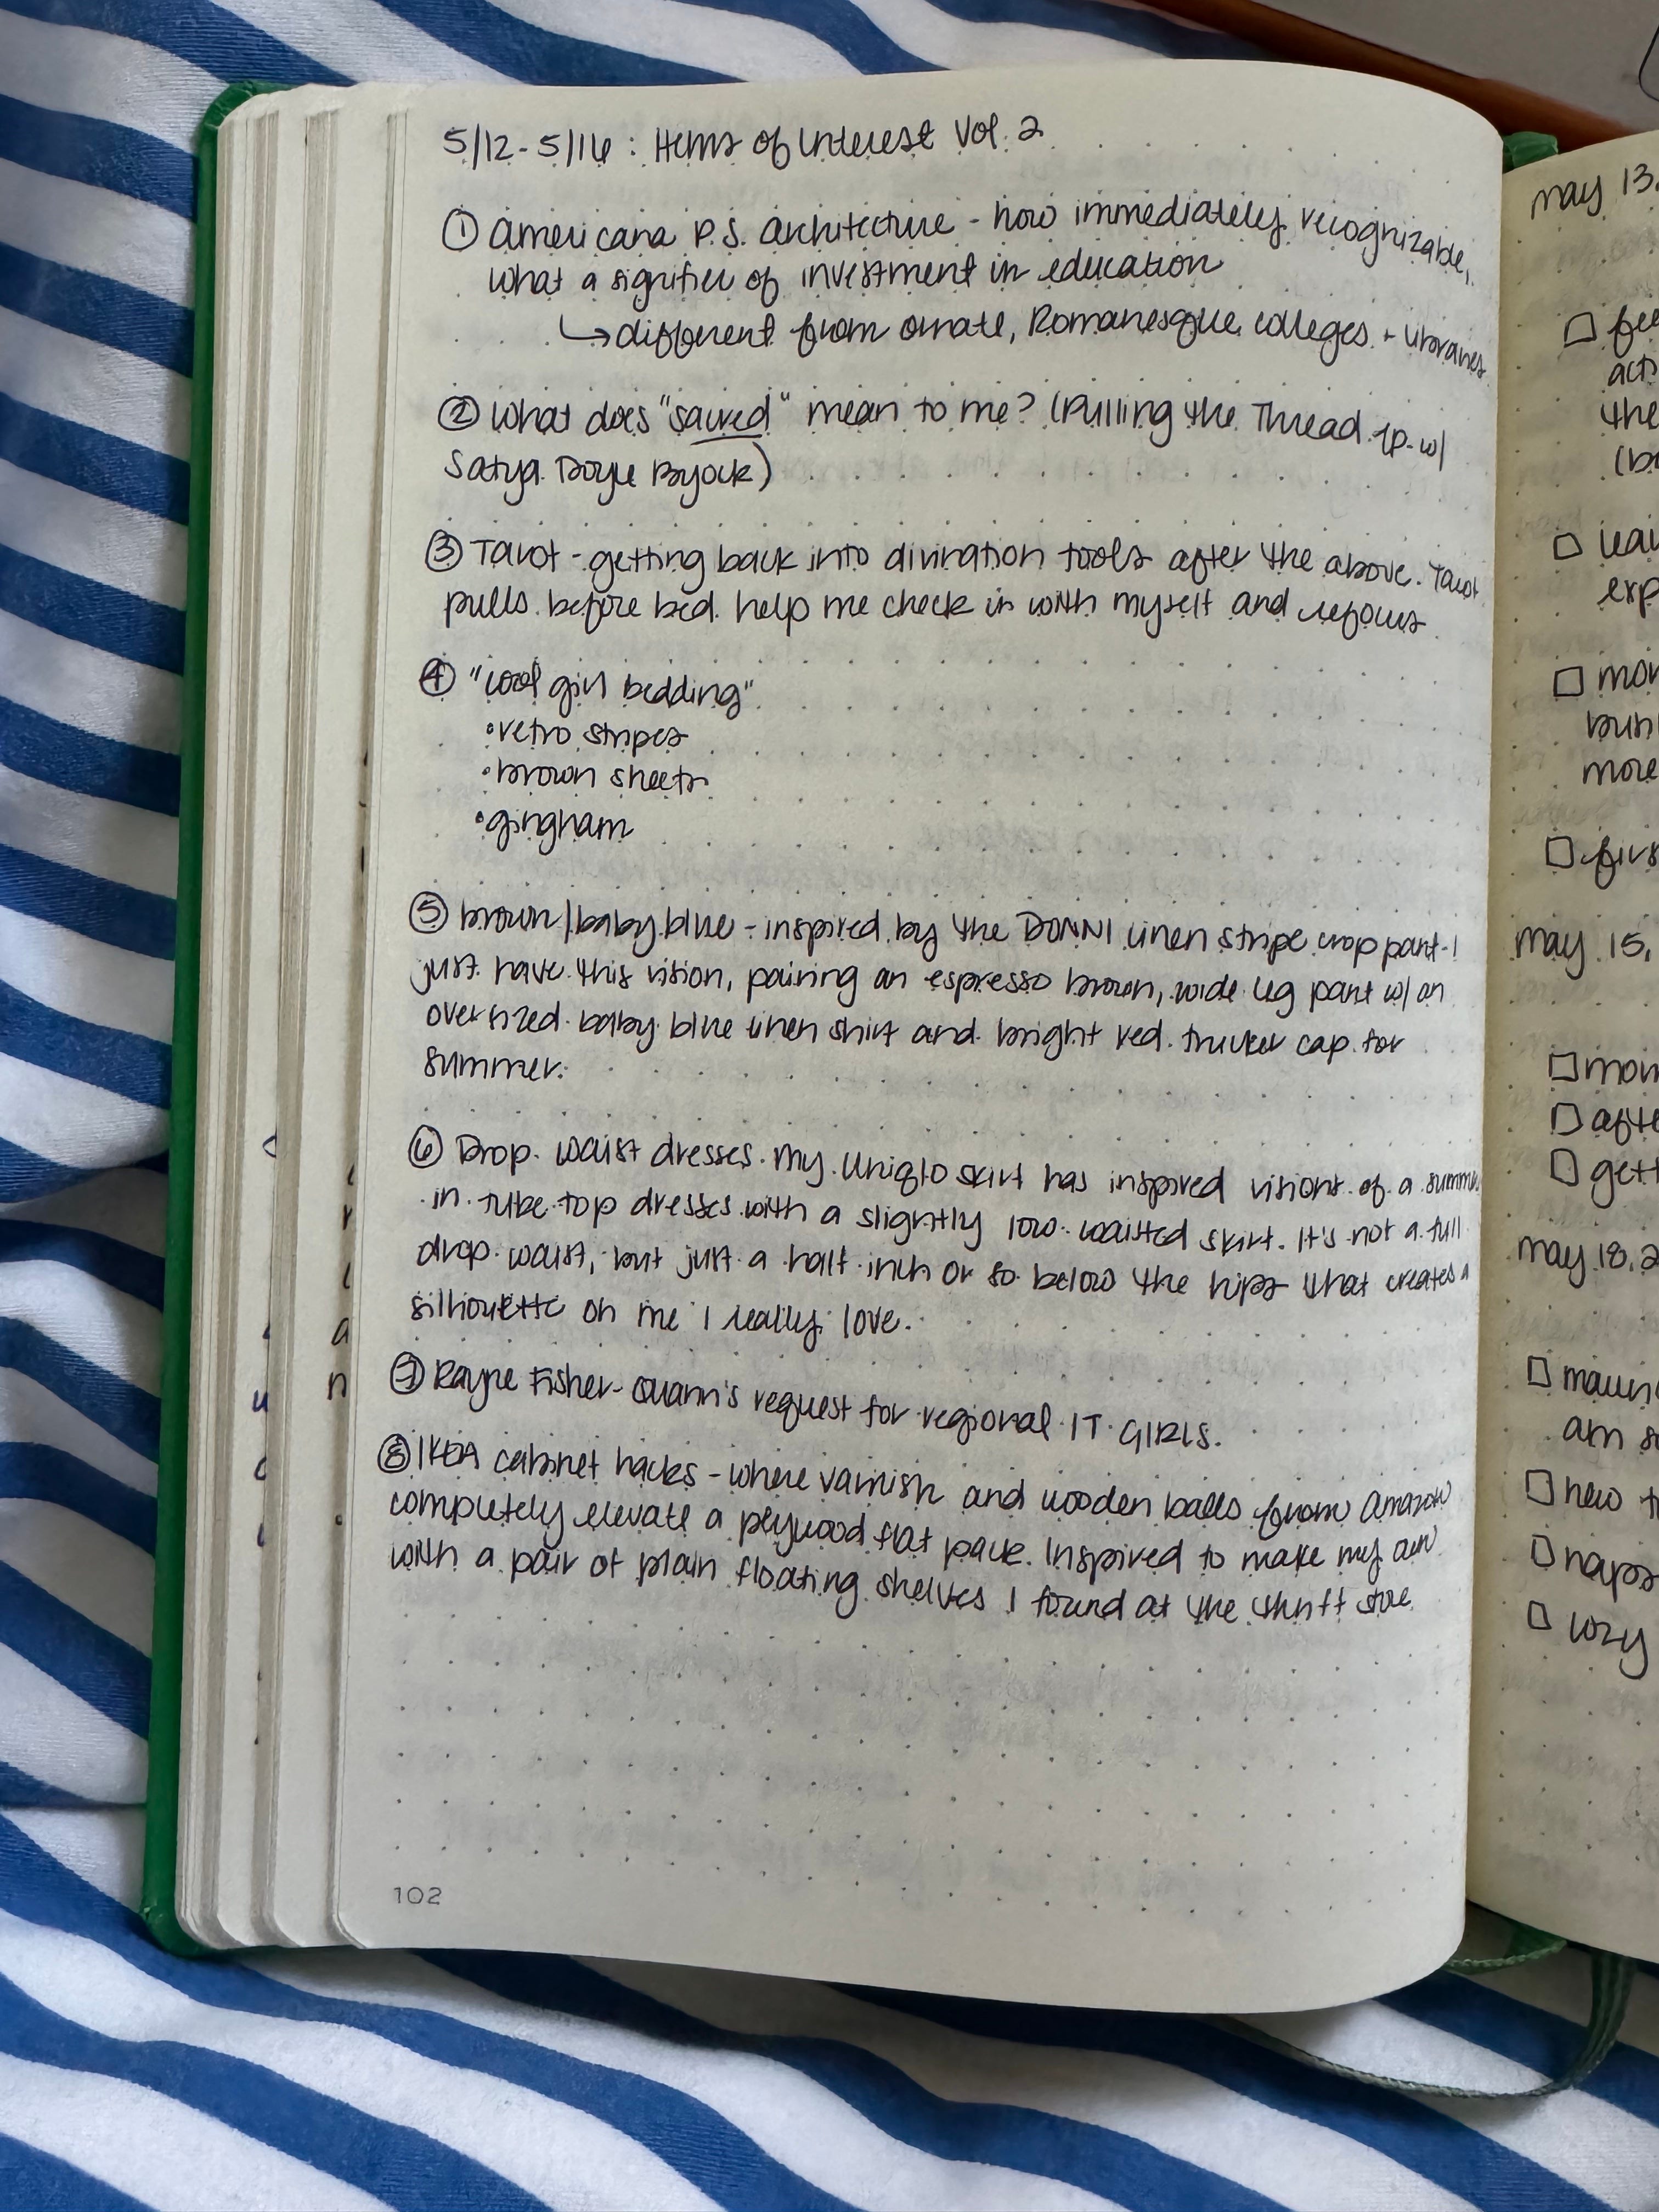 5/12-5/16: Items of Interest Vol. 2
① Americana P.S. Architecture - how immediately recognizable,
what a signifier of investment in education
↳ different from ornate, Romanesque colleges + libraries
② What does "sacred" mean to me? (Pulling the Thread ep. w/
Satya Doyle Byock)
③ Tarot - getting back into divination tools after the above. Tarot
pulls before bed help me check in with myself and refocus
④ "cool girl bedding"
• retro stripes
• brown sheets
• gingham
⑤ brown/baby blue - inspired by the DONNI linen stripe crop pant - I
just have this vision, pairing an espresso brown, wide leg pant w/ an
oversized baby blue linen shirt and bright red trucker cap for
summer.
⑥ Drop waist dresses. My Uniqlo skirt has inspired visions of a summer
in tube top dresses with a slightly low waisted skirt. It's not a full
drop waist, but just a half inch or so below the hips that creates a
silhouette on me I really love.
⑦ Rayne Fisher-Quann's request for regional IT GIRLS.
⑧ IKEA cabinet hacks - where varnish and wooden balls from Amazon
completely elevate a plywood flat pack. Inspired to make my own
with a pair of plain floating shelves I found at the thrift store
102
may 13,
the
exp
more
may 15,
may 18, 2
am
new
naps
cozy